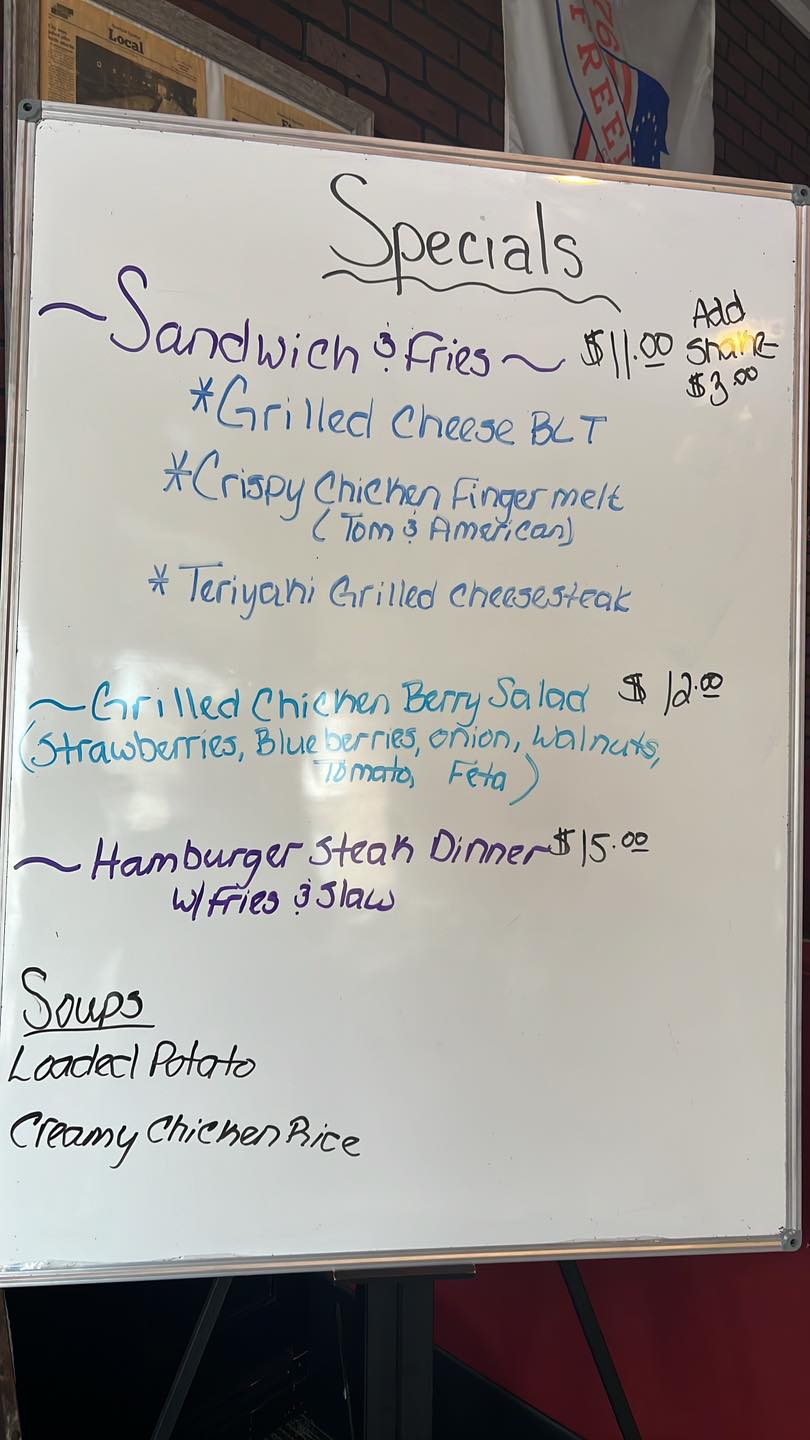 Local
76
FREE
Specials
~Sandwich & Fries~ $11.00
Add
Shake
$3.00
*Grilled Cheese BLT
*Crispy Chicken Finger melt
(Tom & American)
*Teriyaki Grilled Cheesesteak
~Grilled Chicken Berry Salad $12.00
(Strawberries, Blueberries, onion, Walnuts,
Tomato, Feta)
~Hamburger Steak Dinner $15.00
w/ Fries & Slaw
Soups
Loaded Potato
Creamy Chicken Rice